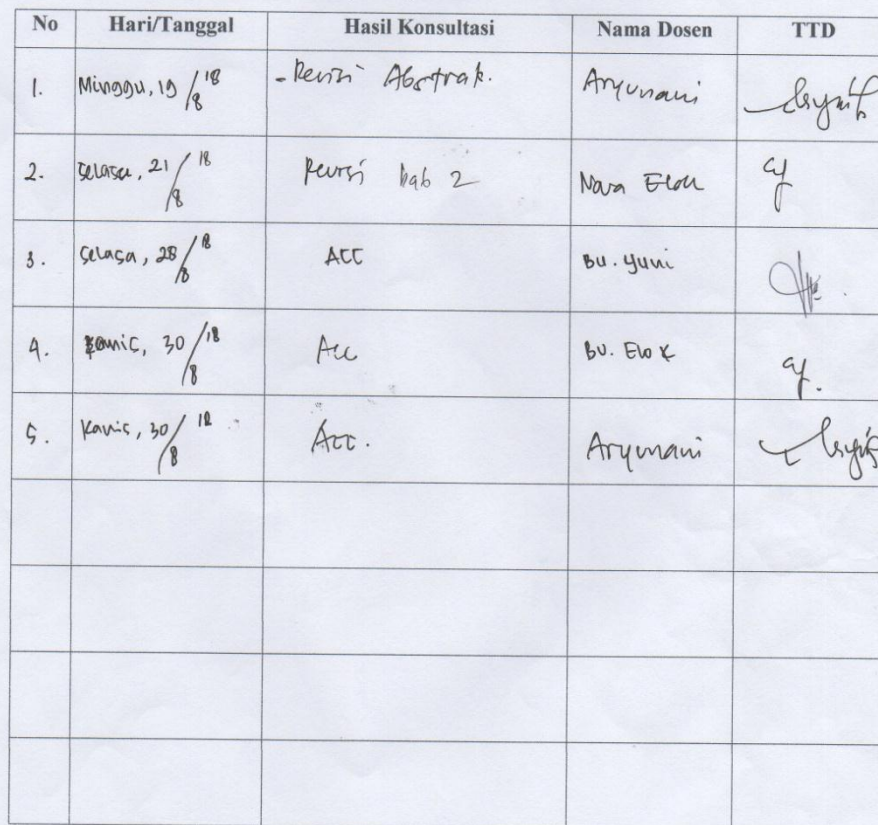 No Hari/Tanggal Hasil Konsultasi Nama Dosen TTD
1. Minggu, 19/8 18 - Revisi Abstrak. Aryunani
2. Selasa, 21/8 18 Revisi bab 2 Nova Elok
3. Selasa, 28/8 18 ACC Bu. Yuni
4. Kamis, 30/8 18 Acc Bu. Elok
5. Kamis, 30/8 18 Acc. Aryunani